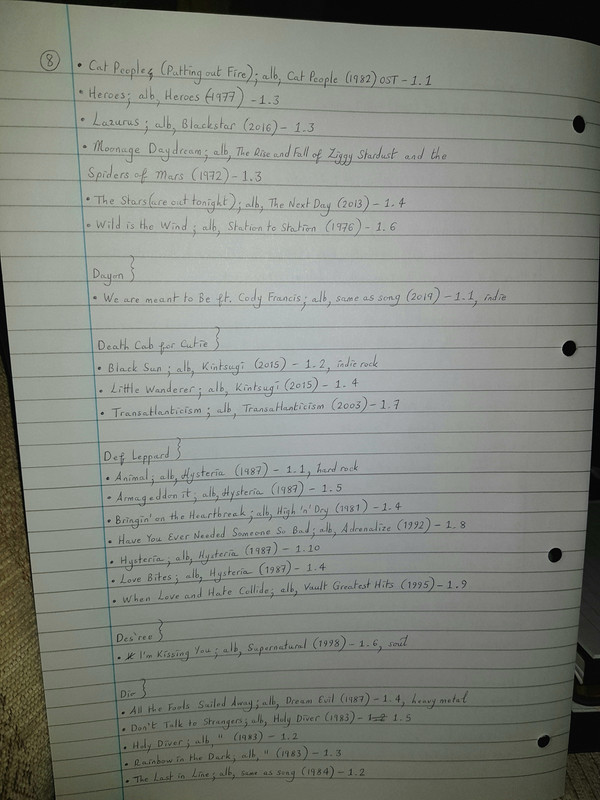 8
• Cat People, (Putting out Fire); alb, Cat People (1982) OST - 1.1
• Heroes; alb, Heroes (1977) - 1.3
• Lazurus; alb, Blackstar (2016) - 1.3
• Moonage Daydream; alb, The Rise and Fall of Ziggy Stardust and the
Spiders of Mars (1972) - 1.3
• The Stars (are out tonight); alb, The Next Day (2013) - 1.4
• Wild is the Wind; alb, Station to Station (1976) - 1.6
Dayon }
• We are meant to Be ft. Cody Francis; alb, same as song (2019) - 1.1, indie
Death Cab for Cutie }
• Black Sun; alb, Kintsugi (2015) - 1.2, indie rock
• Little Wanderer; alb, Kintsugi (2015) - 1.4
• Transatlanticism; alb, Transatlanticism (2003) - 1.7
Def Leppard }
• Animal; alb, Hysteria (1987) - 1.1, hard rock
• Armageddon it; alb, Hysteria (1987) - 1.5
• Bringin' on the Heartbreak; alb, High 'n' Dry (1981) - 1.4
• Have You Ever Needed Someone So Bad; alb, Adrenalize (1992) - 1.8
• Hysteria; alb, Hysteria (1987) - 1.10
• Love Bites; alb, Hysteria (1987) - 1.4
• When Love and Hate Collide; alb, Vault Greatest Hits (1995) - 1.9
Des'ree }
• I'm Kissing You; alb, Supernatural (1998) - 1.6, soul
Dio }
• All the Fools Sailed Away; alb, Dream Evil (1987) - 1.4, heavy metal
• Don't Talk to Strangers; alb, Holy Diver (1983) - 1.5
• Holy Diver; alb, " (1983) - 1.2
• Rainbow in the Dark; alb, " (1983) - 1.3
• The Last in Line; alb, same as song (1984) - 1.2